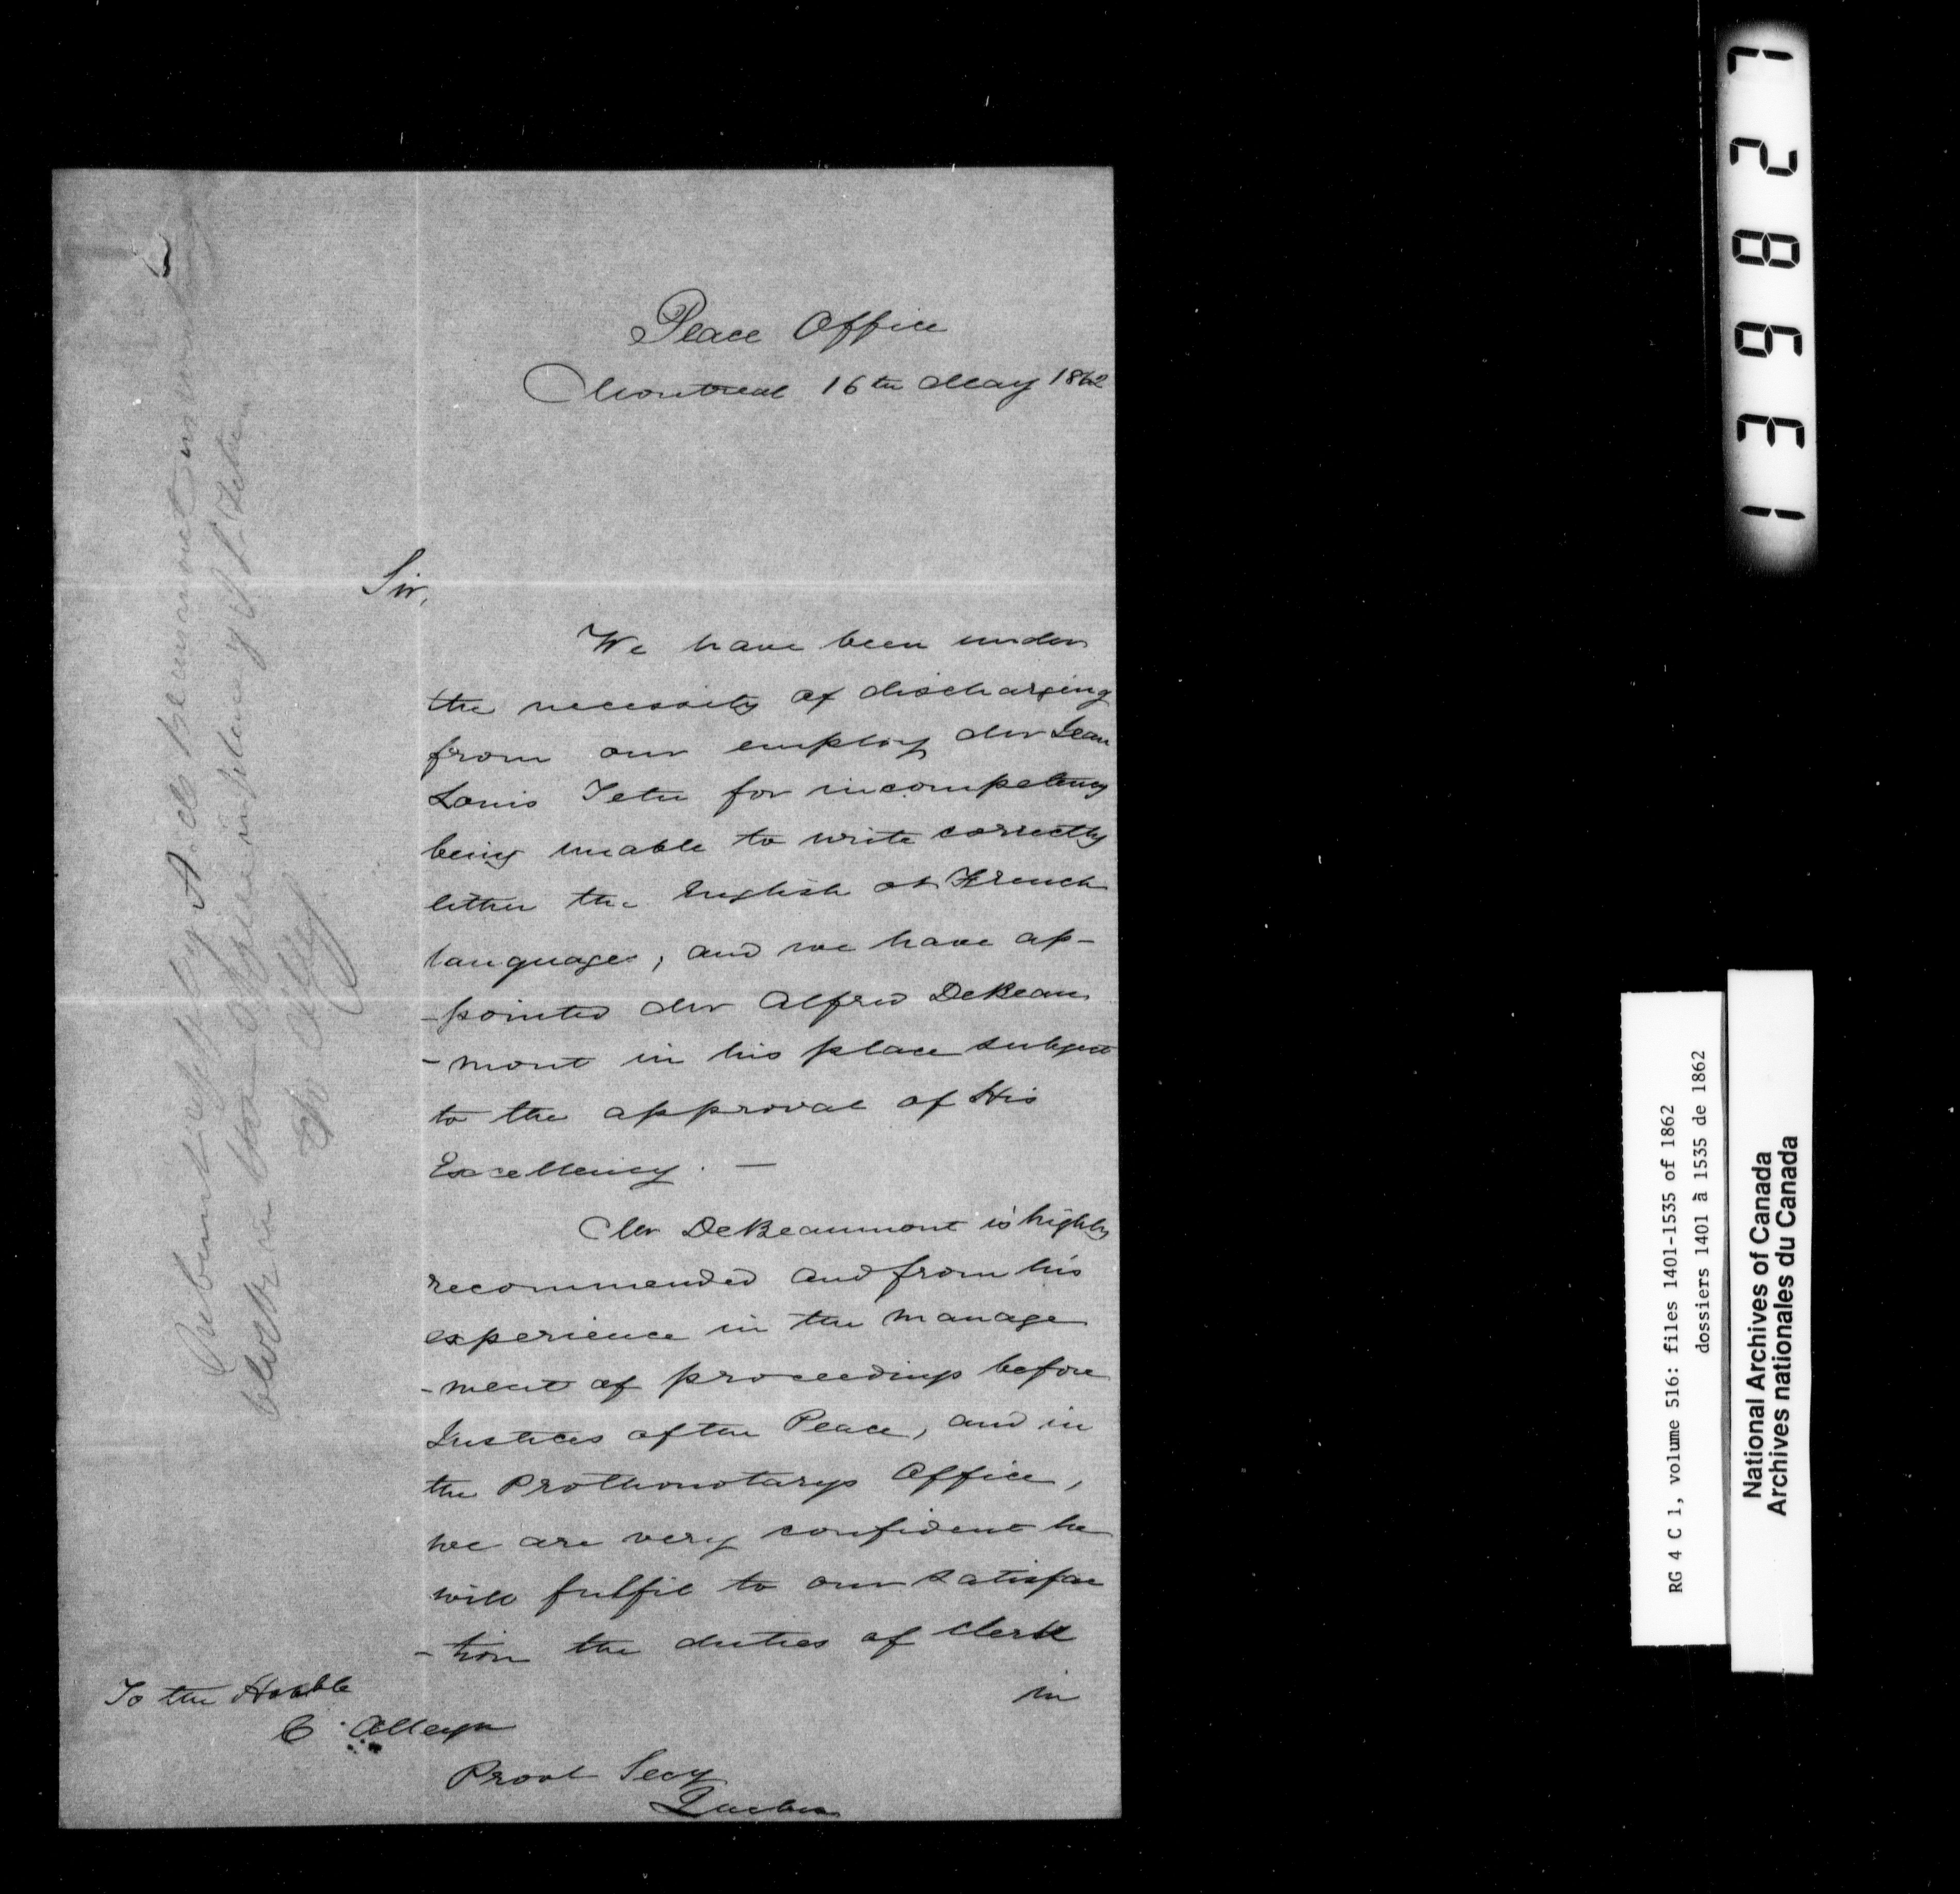 Peace Office
Montreal 16th May 1862
Sir,
We have been under
the necessity of discharging
from our employ Mr Jean
Louis Tetu for incompetency
being unable to write correctly
either the English or French
languages, and we have ap-
-pointed Mr Alfred DeBeau
-mont in his place subject
to the approval of His
Excellency. —
Mr DeBeaumont is highly
recommended and from his
experience in the manage
-ment of proceedings before
Justices of the Peace, and in
the Prothonotarys Office,
we are very confident he
will fulfil to our satisfac
-tion the duties of Clerk
in
To the Honble
C. Alleyn
Provl Secy
Quebec
A. de Beaumont
clerk in the Office in place of J. L. Tetu
128631
RG 4 C 1, volume 516: files 1401-1535 of 1862
dossiers 1401 à 1535 de 1862
National Archives of Canada
Archives nationales du Canada